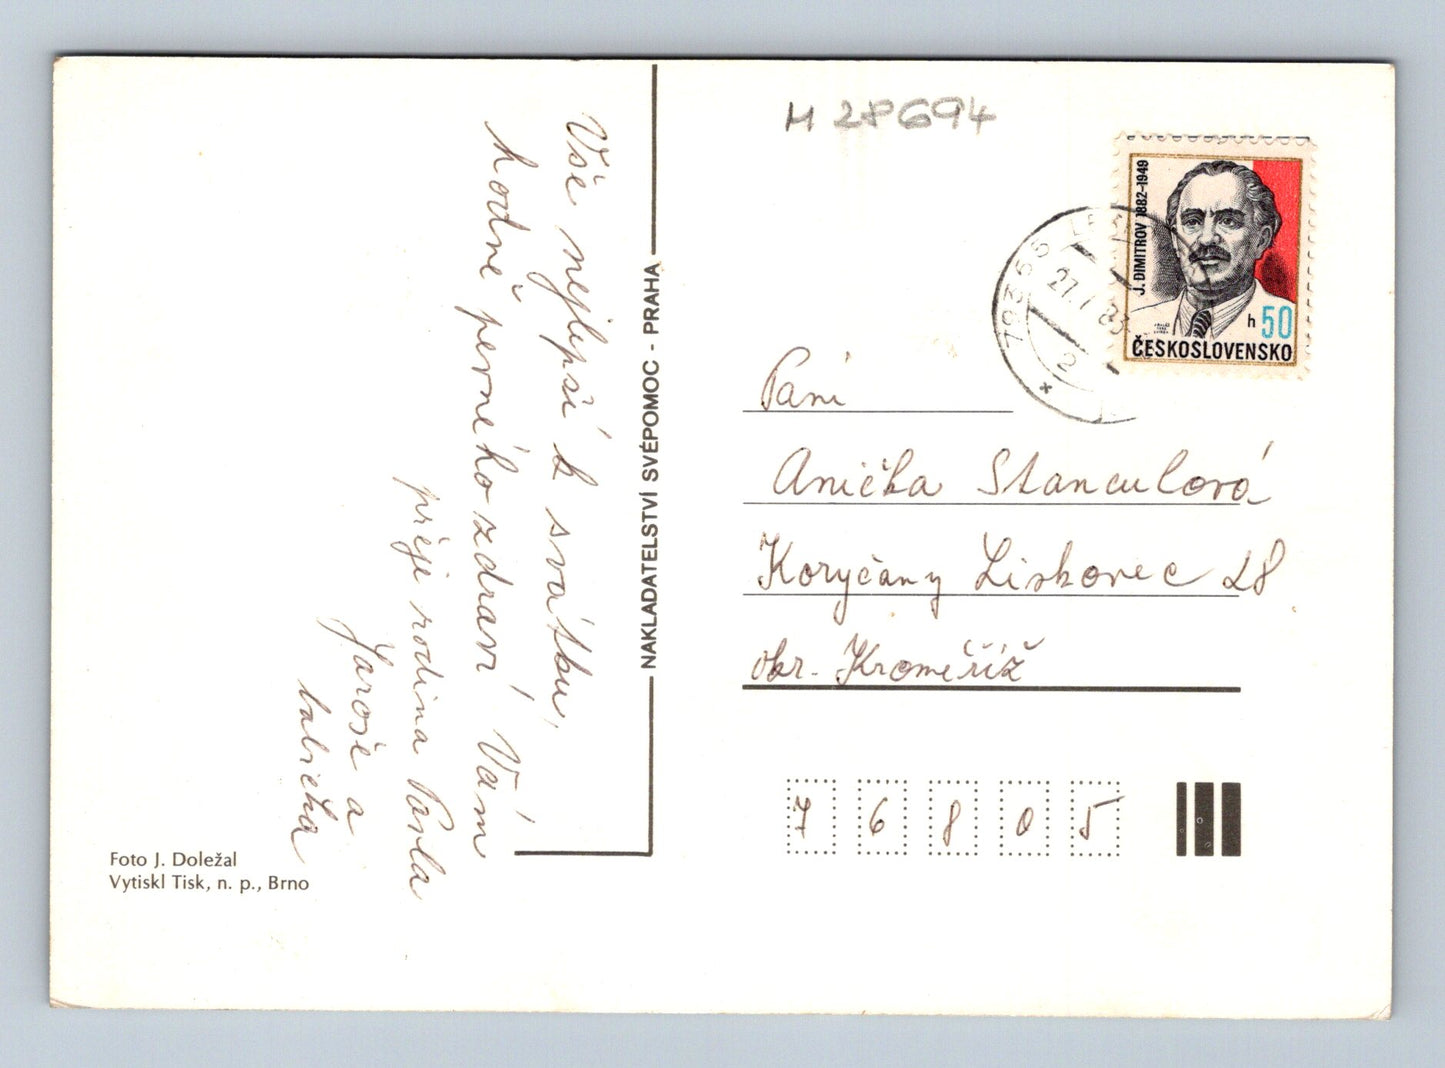 Vše nejlepší k svátku,
hodně pevného zdraví Vám
přeje rodina Pavla
Jaroše a
babička
NAKLADATELSTVÍ SVÉPOMOC - PRAHA
Foto J. Doležal
Vytiskl Tisk, n. p., Brno
M 28694
J. DIMITROV 1882-1949
h 50
ČESKOSLOVENSKO
793 56
27. 83
2
*
Paní
Anička Stanculová
Koryčany Liskovec 28
okr. Kroměříž
7 6 8 0 5